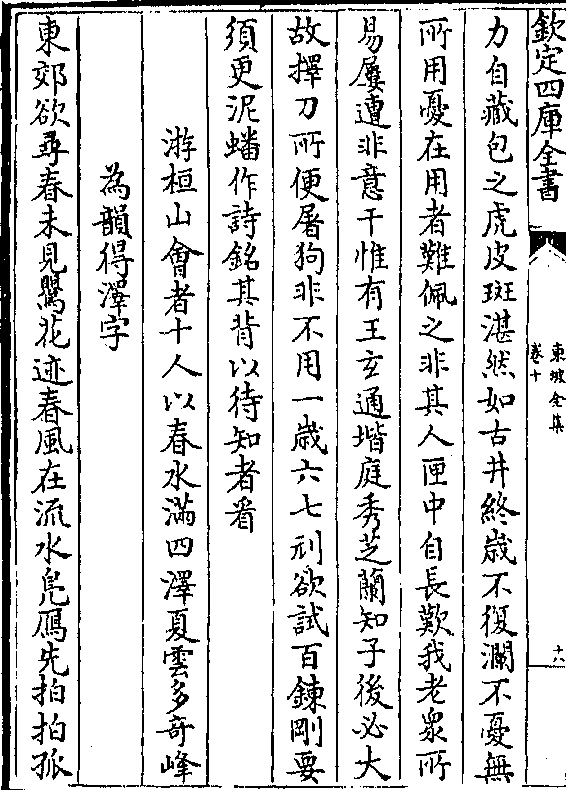 欽定四庫全書
東坡全集
卷十
十六
力自藏包之虎皮斑湛然如古井終歲不復瀾不憂無
所用憂在用者難佩之非其人匣中自長歎我老衆所
易屢遭非意干惟有王玄通堦庭秀芝蘭知子後必大
故擇刀所便屠狗非不用一歲六七刓欲試百鍊剛要
須更泥蟠作詩銘其背以待知者看
游桓山會者十人以春水滿四澤夏雲多奇峰
為韻得澤字
東郊欲尋春未見鸎花迹春風在流水鳧鴈先拍拍孤